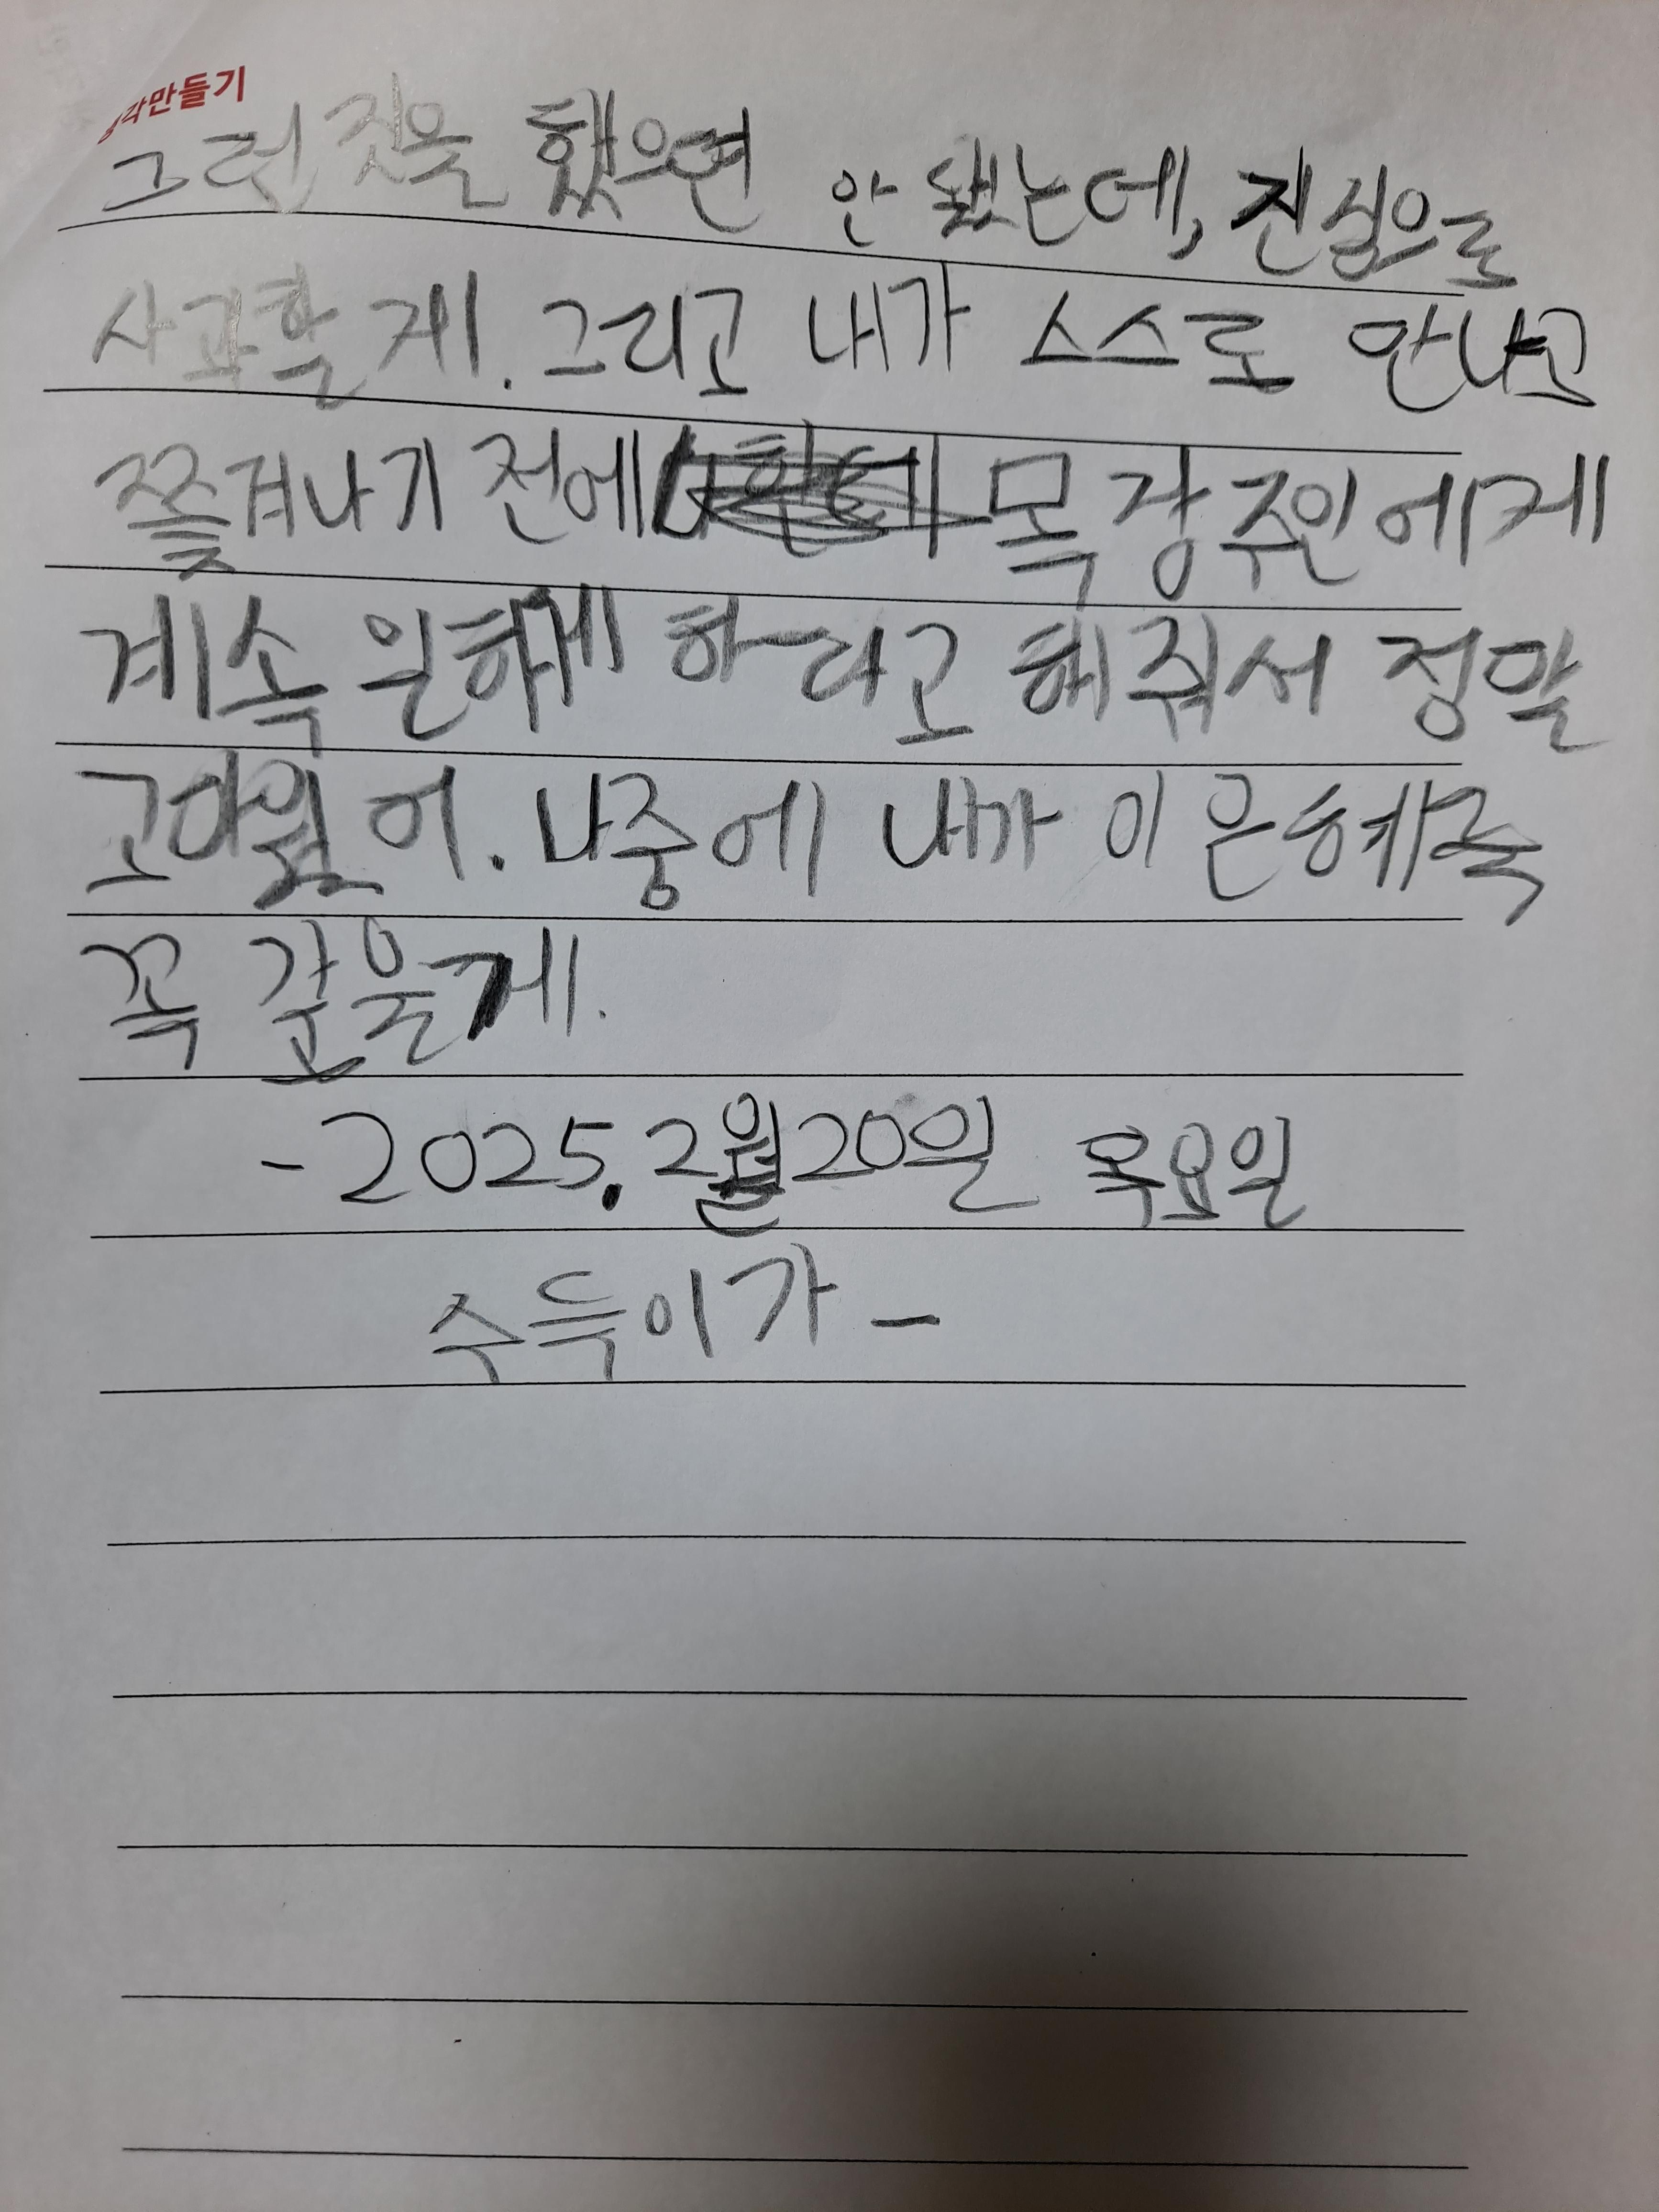 각만들기
그런 짓을 했으면 안 됐는데, 진심으로
사과할게. 그리고 내가 스스로 안나고
쫓겨나기 전에 목장주인에게
계속 일하게 하라고 해줘서 정말
고마웠어. 나중에 내가 이 은혜 꼭
꼭 갚을게.
-2025. 2월20일 목요일
수득이가-